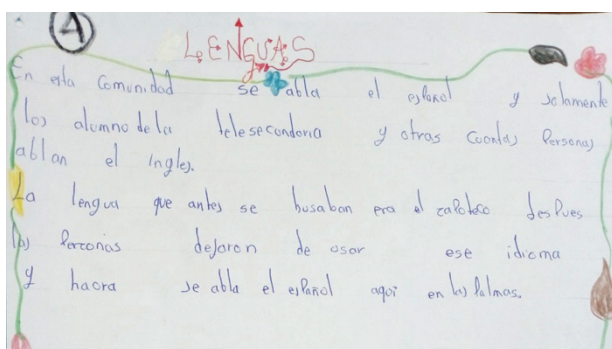 4
LENGUAS
En esta Comunidad se abla el español y solamente
los alumno de la telesecondoria y otras cuantas Personas
ablan el Ingles.
La lengua que antes se husaban era el zapoteco desPues
las Perconas dejaron de usar ese idioma
y haora se abla el esPañol aqui en las Palmas.